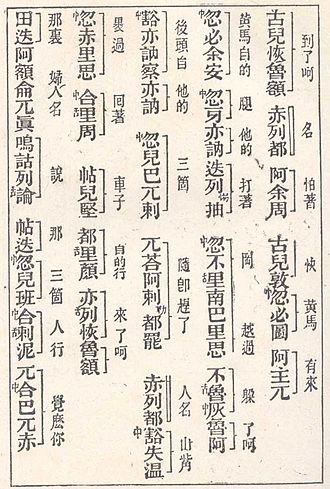 到了呵 名 怕著 快 黃馬 有來
古兒恢魯額 赤列都 阿余周 古兒敦中忽必圖 阿主兀
黃馬自的 腿 他的 打著 岡 越過 躱了呵
中忽必余安 中忽牙亦訥 迭列惕抽 中忽不里南巴里思 不魯灰魯阿
後頭自 他的 三箇 隨即趕了 人名 山觜
豁亦訥察亦訥 中忽兒巴兀剌 兀荅阿剌都罷 赤列都豁失溫
㬅過 囘著 車子 自的行 來了呵
中忽赤里思 中合里周 帖兒堅 都里顏 亦列恢魯額
那裏 婦人名 說 那 三箇 人行 覺麽你
田迭阿額侖兀眞嗚詁列論 帖迭中忽兒班中合剌泥 兀中合巴兀赤